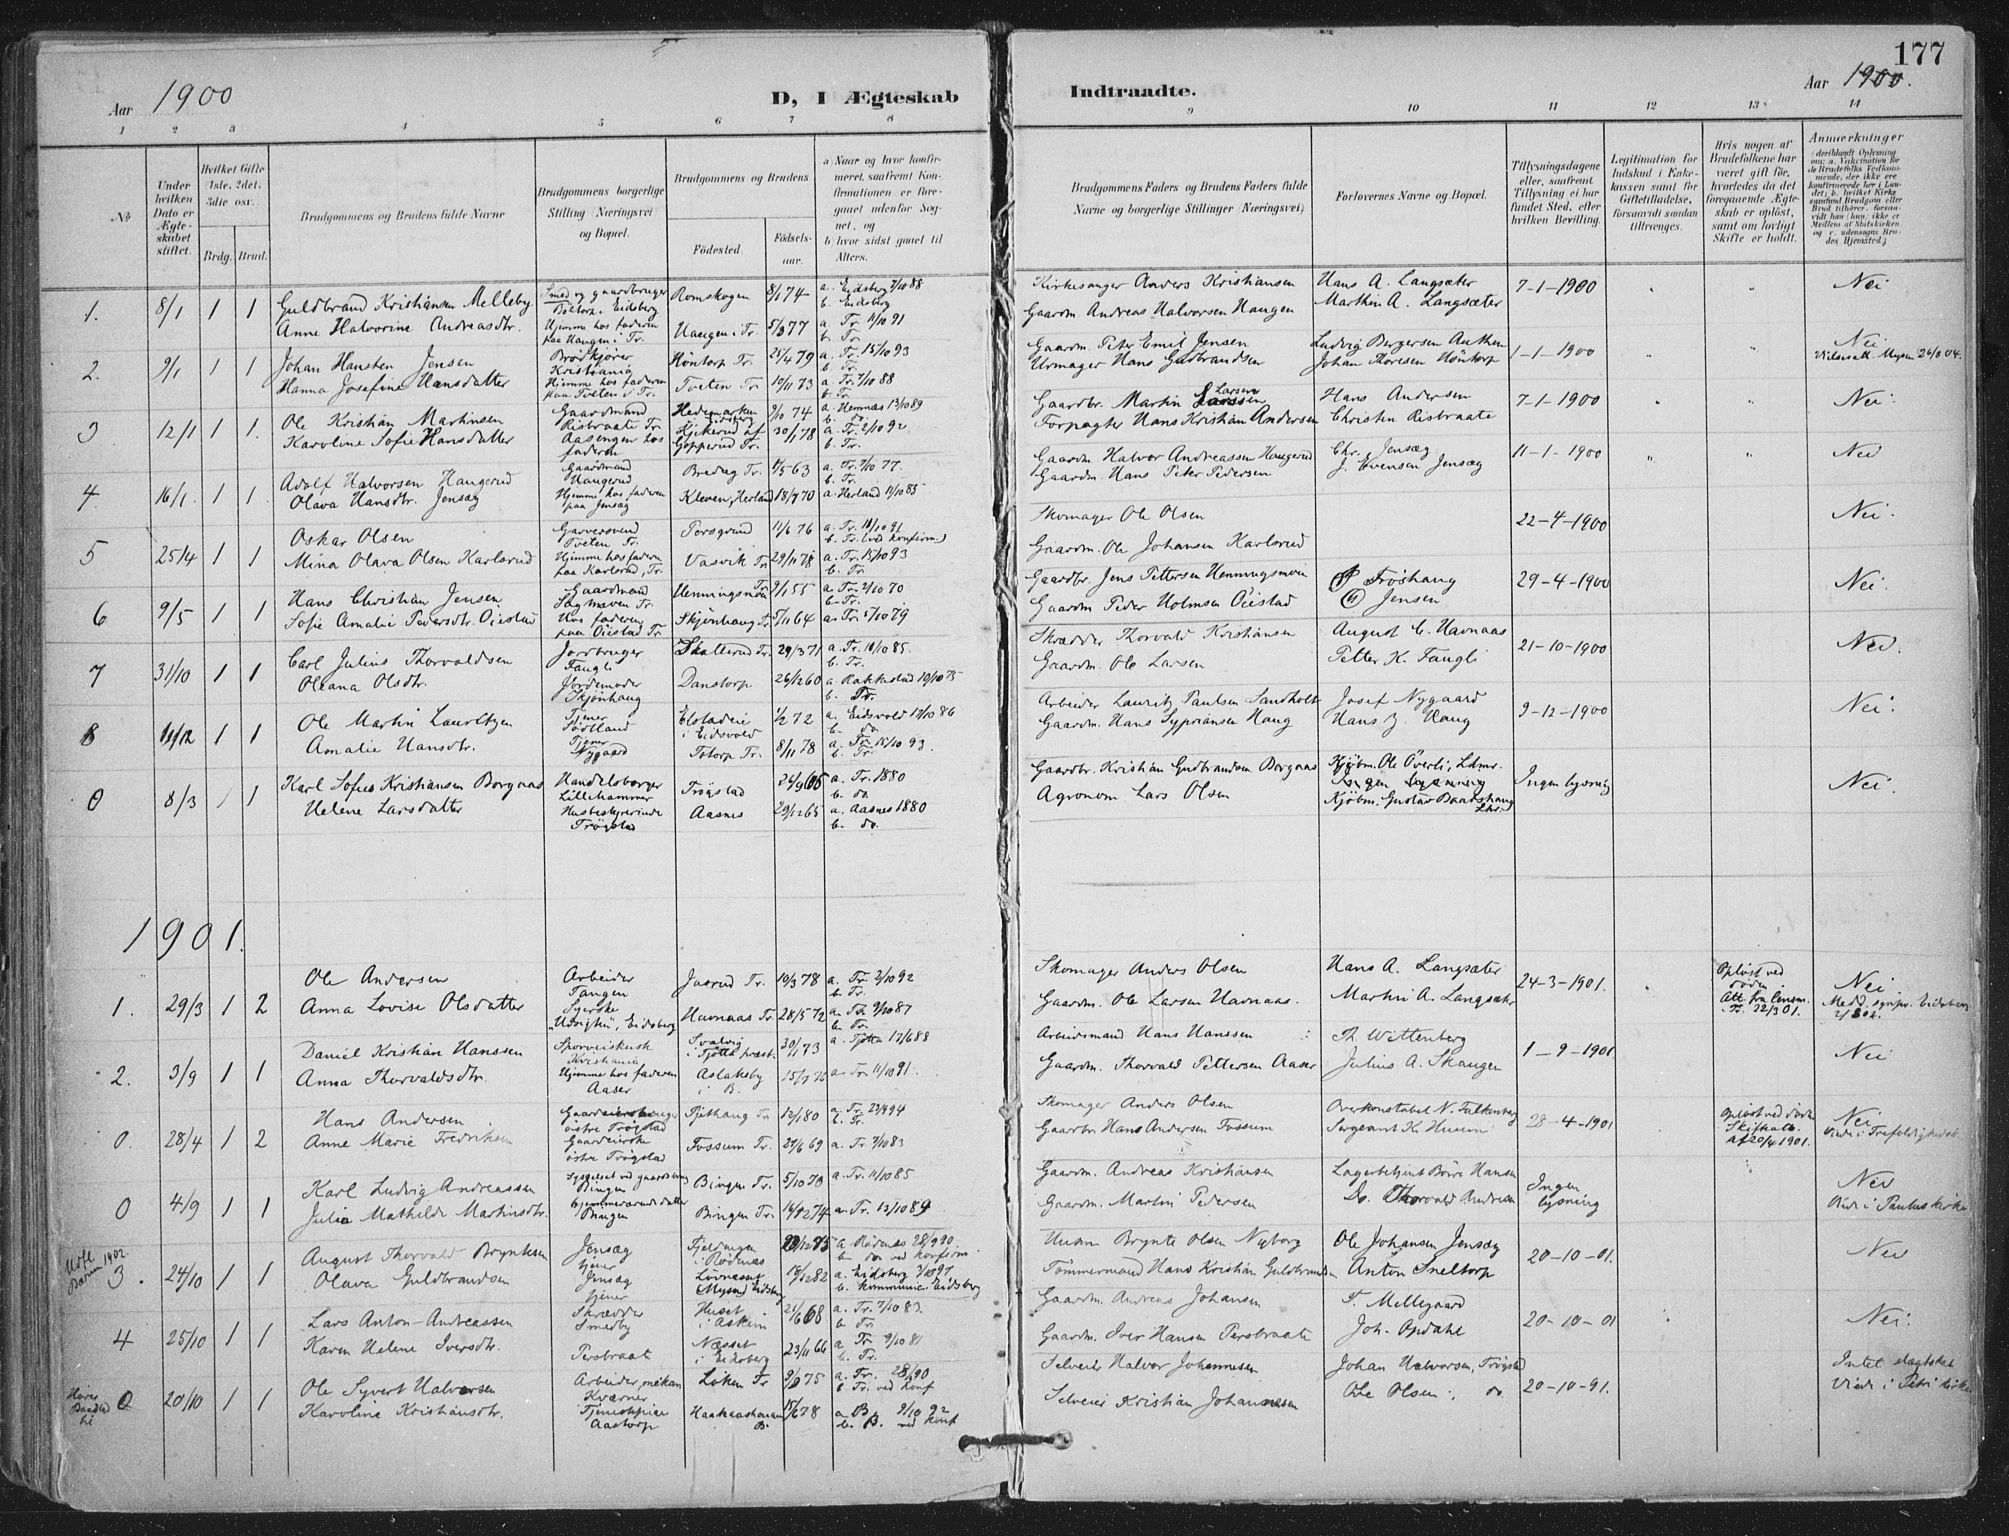 177
Aar 1900
D, I Ægteskab
Indtraadte.
Aar 1900.
1 2 3 4 5 6 7 8 9 10 11 12 13 14
No
Under hvilken Dato er Ægteskabet stiftet.
Hvilket Gifte 1ste, 2det, 3die osv.
Brdg. Brud.
Brudgommens og Brudens fulde Navne
Brudgommens borgerlige Stilling (Næringsvei) og Bopæl.
Brudgommens og Brudens
Fødested.
Fødselsaar.
a) Naar og hvor konfirmeret, saafremt Konfirmationen er foregaaet udenfor Sognet, og
b) hvor sidst gaaet til Alters.
Brudgommens Faders og Brudens Faders fulde Navne og borgerlige Stillinger (Næringsvei)
Forlovernes Navne og Bopæl.
Tillysningsdagene eller, saafremt Tillysning ei har fundet Sted, efter hvilken Bevilling.
Legitimation for Indskud i Enkekassen samt for Giftetilladelse, forsaavidt saadan tiltrænges.
Hvis nogen af Brudefolkene har været gift før, hvorledes da det foregaaende Ægteskab er opløst, samt om lovligt Skifte er holdt.
Anmerkninger
1. 8/1 1 1 Guldbrand Kristiansen Melleby Smed og gaardbruger Boltorp i Eidsberg Romskogen 8/1 74 a. Eidsberg 7/10 88 b. Eidsberg Kirkesanger Anders Kristiansen Hans A. Langsæter 7-1-1900 Nei
Anne Halvorine Andreasdtr. Hjemme hos faderen paa Haugen i Tr. Haugen i Tr. 5/3 77 a. Tr. 11/10 91 b. Tr. Gaardm. Andreas Halvorsen Haugen Martin A. Langsæter
2. 9/1 1 1 Johan Hansten Jensen Brødkjører Kristiania Høntorp Tr. 25/4 79 a. Tr. 15/10 93 b. Tr. Gaardm. Peter Emil Jensen Ludvig Bergersen 1-1-1900 Nei
Hanna Josefine Hansdatter Hjemme hos faderen paa Tveten i Tr. Tveten Tr. 10/11 73 a. Tr. 7/10 88 b. Tr. Urmager Hans Gudbrandsen Johan Thoresen Høntorp
3 12/1 1 1. Ole Kristian Martinsen Gaardmand Risbraate Tr. Hedemarken 74 a. Hemnæs 13/10 89 b. do. Gaardbr. Martin Larsen Hans Andersen 7-1-1900 Nei
Karoline Sofie Hansdatter Aasengen hos faderen Gopperud Tr. 30/1 78 a. Tr. 2/10 92 b. Tr. Forpagter Hans Kristian Andersen Christen Risbraate
4. 16/1. 1 1. Adolf Halvorsen Haugerud Gaardmand Haugerud Bredag Tr. 4/5 63 a. Tr. 7/10 77. b. Tr. Gaardm. Halvor Andreassen Haugerud Chr. Jensæg 11-1-1900 Nei
Olava Hansdtr. Jensæg Hjemme hos faderen paa Jensæg Kleven, Herland 18/7 70 a. Herland 11/10 85 Gaardm. Hans Peter Pedersen J. Evensen Jensæg
5 25/4 1 1 Oskar Olsen Garversvend Tveten Tr. Porsgrund 11/6 76 a. Tr. 18/10 91 b. Tr. (ved konfirm.) Skomager Ole Olsen 22-4-1900 Nei.
Mina Olava Olsen Karlsrud Hjemme hos faderen paa Karlsrud, Tr. Vasvik Tr. 29/11 78 a. Tr. 15/10 93 b. Tr. Gaardm. Ole Johansen Karlsrud
6 9/5 1 1 Hans Christian Jensen Gaardmand Saghaven Tr. Henningsmoen Tr. 9/1 55 a. Tr. 2/10 70 b. Tr. Gaardbr. Jens Pettersen Henningsmoen P Frøshaug 29-4-1900 Nei.
Sofie Amalie Pedersdtr. Oiestad Hos faderen paa Oiestad Tr. Skjønhaug Tr. 5/11 64 a. Tr. 5/10 79 Gaardm Peder Holmsen Oiestad Jensen
7 31/10 1 1 Carl Julius Thorvaldsen Jordbruger Faugli Skallerud Tr. 29/3 71 a. Tr. 18/10 85. b. Tr. Skrædder Thorvald Kristiansen August C. Havnaas 21-10-1900 Nei.
Oleana Olsdtr. Jordemoder Skjønhaug Danstorp 26/12 60 a. Rakkestad 10/10 75 b. Tr. Gaardm. Ole Larsen Petter K. Faugli
8 11/12 1 1 Ole Martin Lauritzen Tjener Sødtland Elstadeie i Eidsvold 1/2 72 a. Eidsvold 17/10 86 b. do Arbeider Lauritz Paulsen Sandholt Josef Nygaard 9-12-1900 Nei.
Amalie Hansdtr. Tjener Nygaard Totorp Tr. 8/11 78 a. Tr. 15/10 93. b. Tr. Gaardm. Hans Syprianssen Haug Hans J. Haug
0 8/3 1 1 Karl Sofus Kristiansen Borgaas Handelsborger Lillehammer Trøgstad 24/9 65 a. Tr. 1880 b. do Gaardbr. Kristian Gudbrandsen Borgaas Kjøbm. Ole Överli, Lhmr. Ingen lysning Nei.
Helene Larsdatter Husbestyrerinde Trøgstad Aasnes 29/12 65 a. Aasnes 1880 b. do. Agronom Lars Olsen Kjøbm. Gustav Baardshaug Lhr.
1901.
1. 29/3 1 2 Ole Andersen Arbeider Tangen Jaarud Tr. 19/3 78 a. Tr. 2/10 92 b. Tr. Skomager Anders Olsen Hans A. Langsæter 24-3-1901. Opløst ved døden. Att. fra lensm. i Tr. 22/3 01. Nei.
Anna Lovise Olsdatter Syerske Eidsberg Havnaas Tr. 28/5 72 a. Tr. 9/10 87 b. Tr. Gaardm. Ole Larsen Havnaas. Martin A. Langsæter
2. 3/9 1 1 Daniel Kristian Hanssen Sporveiskusk Kristiania i Tjøtta præst. 30/1 73 a. Tjøtta 17/6 88 Arbeidsmand Hans Hanssen Th Wittenberg 1-9-1901 Nei
Anna Thorvaldsdtr. Hjemme hos faderen Aaser Aslakeby i B. 15/7 76 a. Tr. 11/10 91. Gaardm. Thorvald Pettersen Aaser Julius A. Skaugen
0. 28/4 1 2 Hans Andersen østre Trøgstad Tr 12/1 80 a. Tr. 23/9 94 b. Tr. Skomager Anders Olsen Overkonstabel N. Falkenberg 28-4-1901 Opløst ved døden Skifteatt. af 20/4 1901. Nei Viede i Trefoldighedsk.
Anne Marie Fredriksen Gaardeierske østre Trøgstad Fossum Tr. 27/6 69 a. Tr. 7/10 83 Gaardbr. Hans Andersen Fossum Sergeant K.
0 4/9 1 1 Karl Ludvig Andreassen Sysselsat ved gaardsbrug Bingen Bingen Tr. 5/10 70 a. Tr. 11/10 85 Gaardm. Andreas Kristiansen Lagerbetjent Hansen Ingen lysning Nei Viede i Paulus kirke
Julie Mathilde Martinsdtr. hjemmeværende datter Bingen Bingen Tr. 14/12 74 a. Tr. 13/10 89 Gaardm. Martin Pedersen Do. Thorvald Andresen
3. 24/10 1 1 August Thorvald Bryntesen Jensæg tjener i Rødenes 29/12 75 a. Rødenes 28/9 90. b. do. ved konfirm. Brynte Olsen Nyborg Ole Johansen Jensæg 20-10-01. Nei
Olava Guldbrandsen Jensæg tjener Mysen, Eidsberg 19/12 82 a. Eidsberg 3/10 97 b. kommunic. i Eidsberg Tømmermand Hans Kristian Guldbrandsen Anton Sneltorp
4 25/10 1 1 Lars Anton Andreassen Skrædder Smedby Huset i Askim 21/6 68 a. Tr. 7/10 83. b. Tr. Gaardm. Andreas Johansen T. Mellegaard 20-10-01 Nei.
Karen Helene Iversdtr. Persbraat Næsset i Eidsberg 23/11 66 a. Tr. 9/10 81 b. Tr. Gaardm. Iver Hansen Persbraate Joh. Opdahl
0 20/10 1 1 Ole Syvert Halvorsen Arbeider, Kværner Løken Tr 9/9 75 a. Tr. 28/9 90 b. Tr. ved konf Selveier Halvor Johannesen Johan Halvorsen, Trøgstad 20-10-91. Intet slægtskab Viede i Petri kirke
Karoline Kristiansdtr. Tjenestpige Aastorp B. 17/6 78 a. B. 9/10 92 b. B. ved konf Selveier Kristian Johannesen Ole Olsen, do.